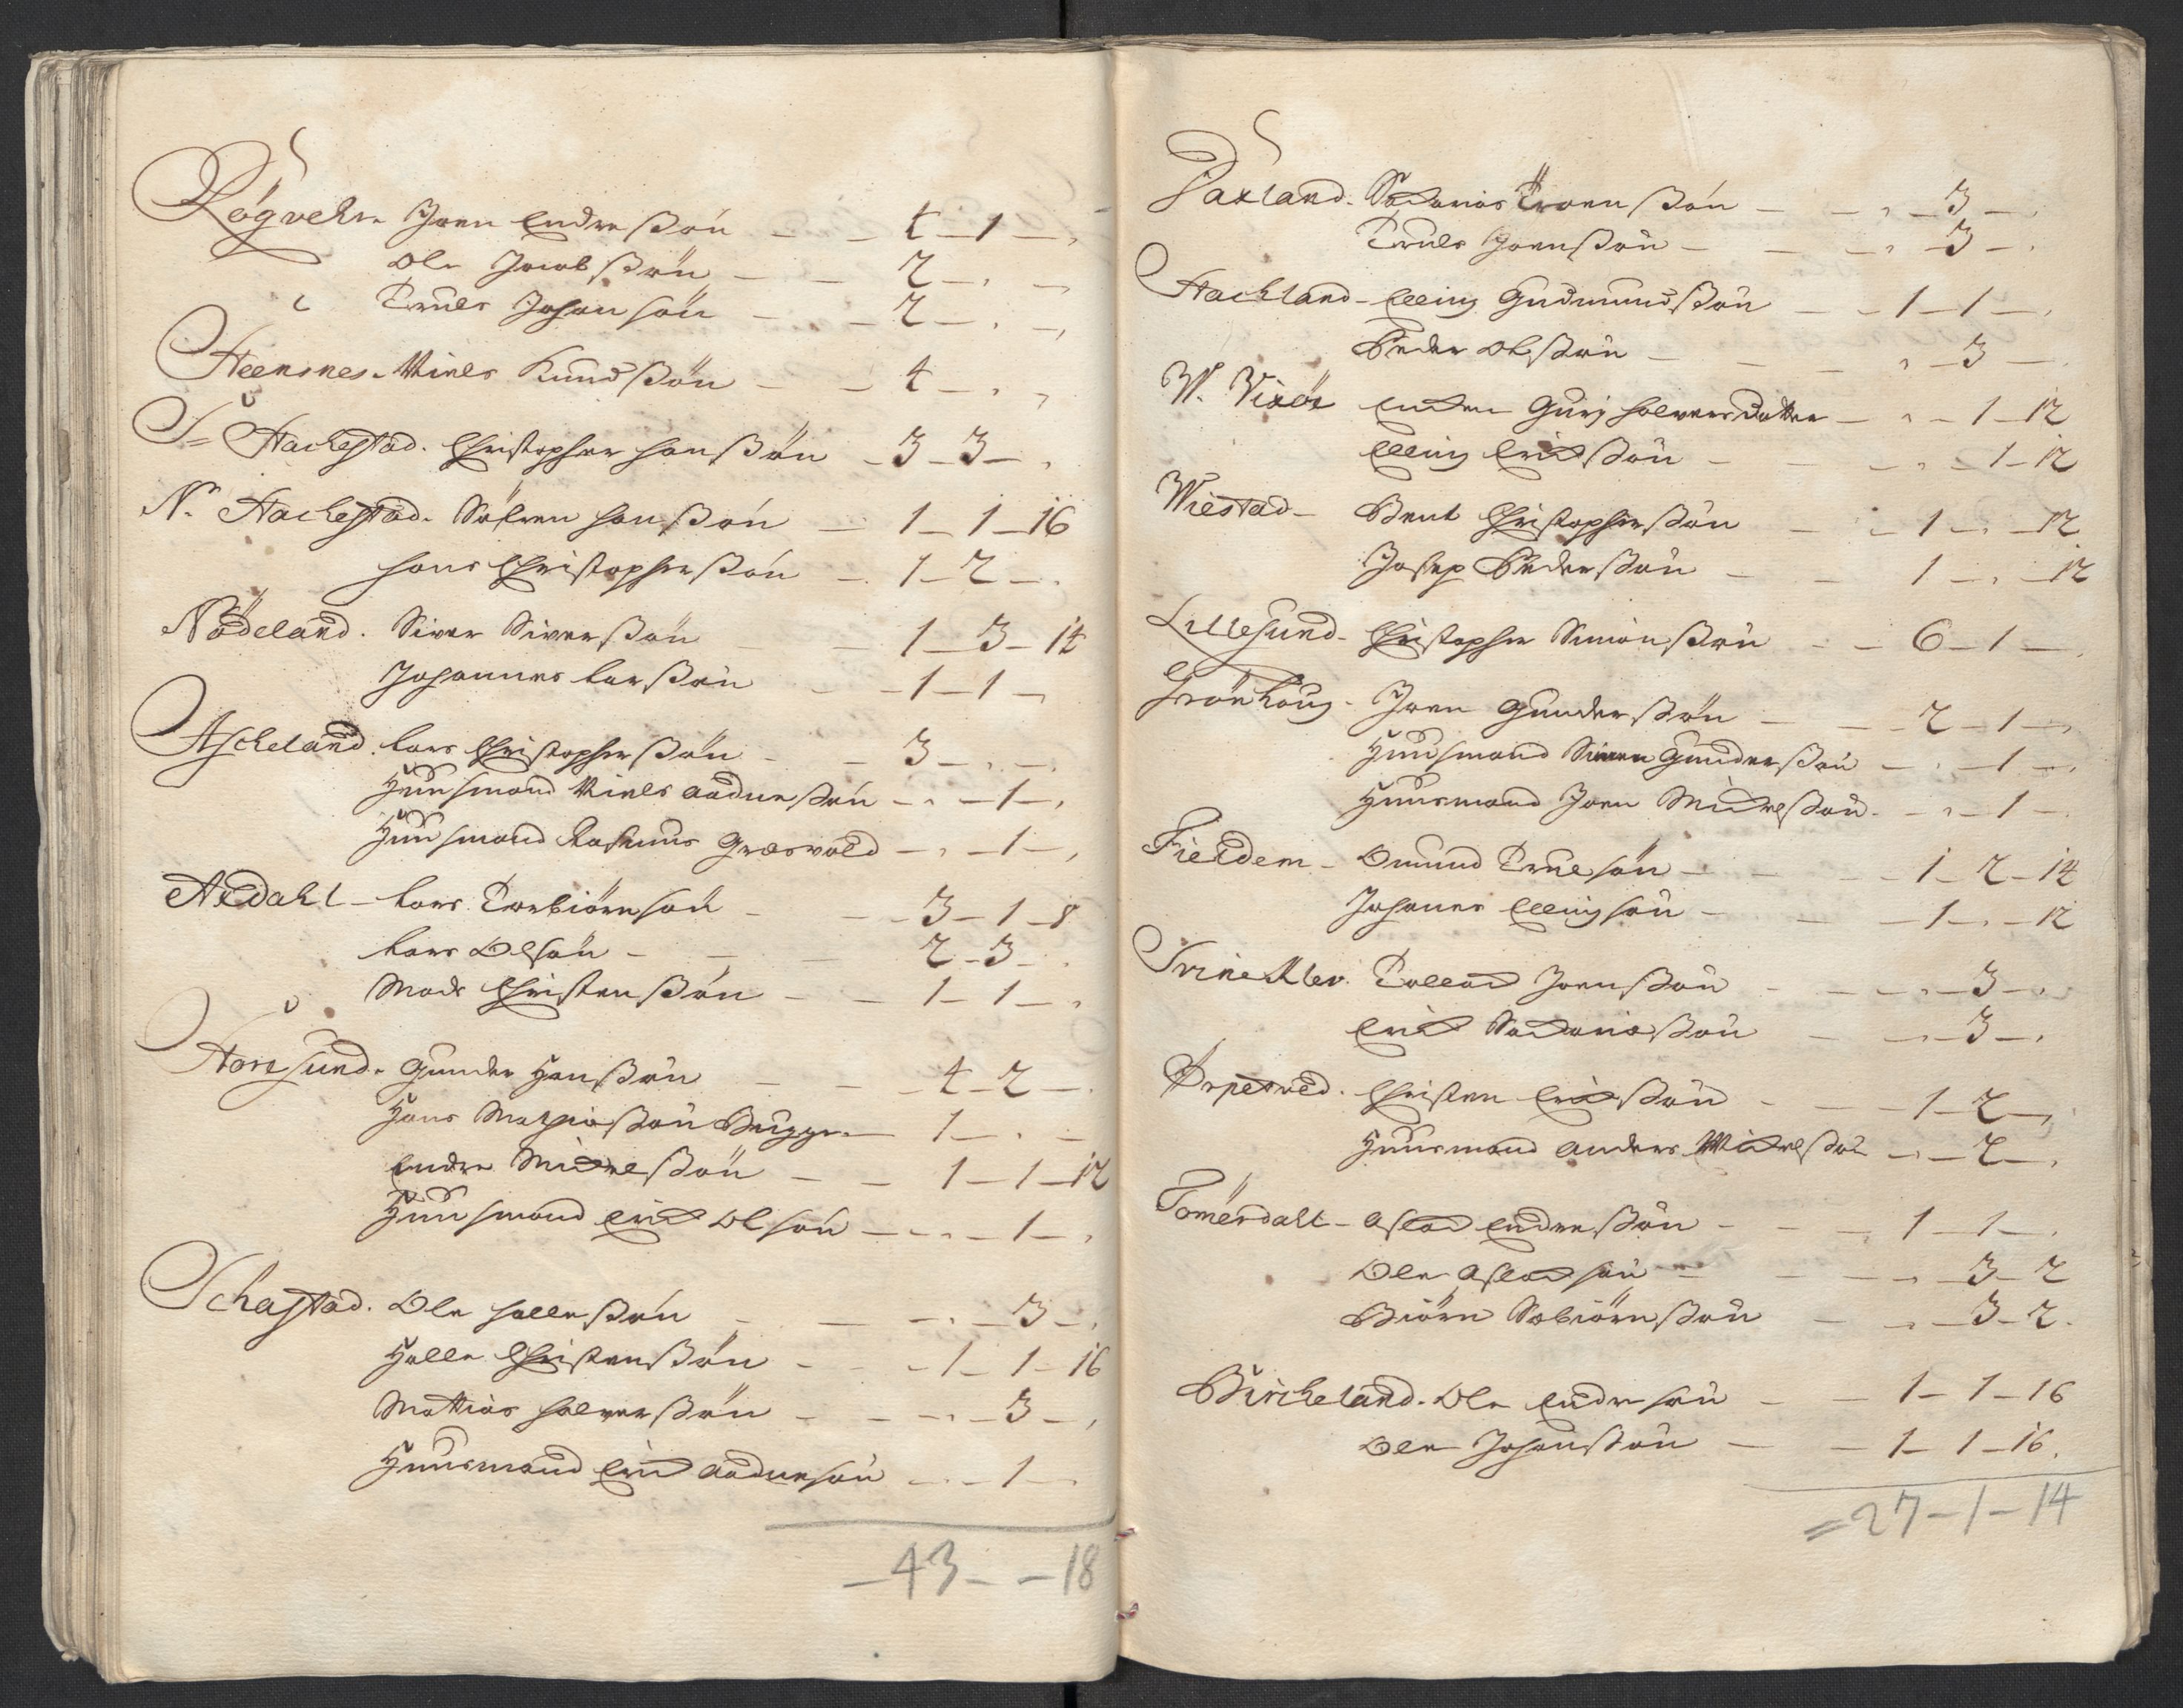 Røgvehn Joen Endreßøn — — 4 – 1 –
Ole Jacobßøn — — 2 – , –
Truls Johansøn — — 2 – , –
Heensnes Niels Knudßøn — — 4 – , ,
S= Hachestad. Christopher Hanßøn – 3 – 3 – ,
N. Hachestad. Søfren Hanßøn — 1 – 1 – 16
Hans Christopherßøn — 1 – 2 – .
Nødeland. Siver Siverßøn — 1 – 3 – 14
Johannes Larßøn — 1 – 1 –
Ascheland. Lars Christopherßøn — 3 – , –
Huusmand Niels Aadneßøn — , – 1 – ,
Huusmand Rasmus Græsvold — , – 1 – ,
Aredahl – Lars Torbiørnsøn — 3 – 1 – 8
Lars Olsøn — — 2 – 3 – .
Mads Christenßøn — — 1 – 1 – ,
Horssund. Gunder Hanßøn — — 4 – 2 – .
Hans Mathiasßøn Brygger — 1 – , –
Endre Michelßøn — — 1 – 1 – 12
Huusmand Erich Olsøn — , – 1 – ,
Schastad. Ole Halleßøn — — , – 3 – ,
Halle Christenßøn — — 1 – 1 – 16
Mattias Halverßøn — — , – 3 – ,
Huusmand Erich Aadnesøn — , – 1 –
– 43 – – 18
Paxland. Sacharias Troenßøn — — , – 3 – ,
Truls Joenßøn — — , – 3 – .
Hachland – Elling Gudmundßøn — – 1 – 1 – .
Peder Olsßøn — — , – 3 –
W. Vixør Enchen Gurj Halversdatter — , – 1 – 12
Elling Erichßøn — — , – 1 – 12
Wiestad – Bent Christopherßøn — – 1 – , – 12
Josep Pederßøn — — 1 – , – 12
Lillesund – Christopher Simonßøn – – 6 – 1 – .
Grønhoug – Joen Gunderßøn — – 2 – 1 –
Huusmand Simen Gunderßøn — , – 1 – .
Huusmand Joen Michelßøn – , – 1 –
Fieldem – Omund Truelsøn — – 1 – 2 – 14
Johanes Ellingsøn — – 1 – , – 12
Svinekler. Tollach Joenßøn — – , – 3 – ,
Erich Sachariasßøn — – , – 3 – ,
Orpetved. Christen Erichßøn — – 1 – 2 – ,
Huusmand Anders Michelßøn – , – 2 – .
Tømersdall – Aslach Enderßøn — – 1 – 1 – .
Ole Aslachsøn — – , – 3 – 2
Biørn Sebiørnßøn — , – 3 – 2.
Bircheland. Ole Endresøn — – 1 – 1 – 16
Ole Johanßøn — – 1 – 1 – 16.
= 27 – 1 – 14